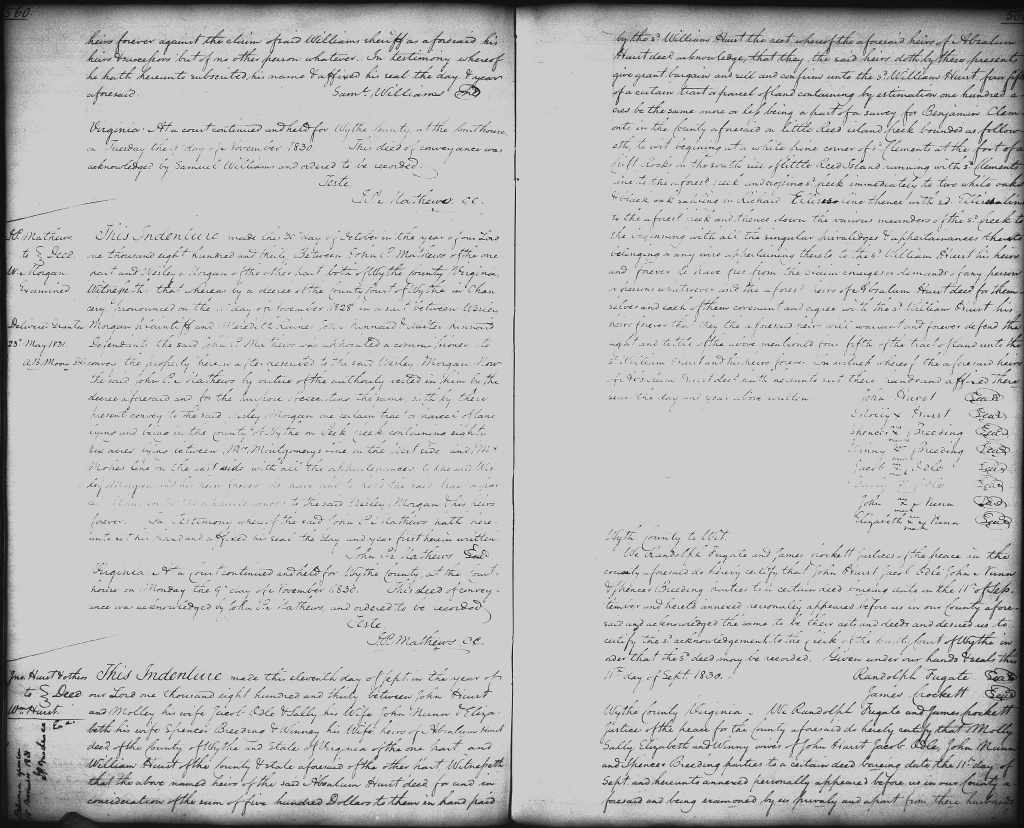 560
heirs forever against the claim of said Williams sheriff as aforesaid his
heirs & successors but of no other person whatever. In testimony whereof
he hath hereunto subscribed his name & affixed his seal the day & year
aforesaid Saml. Williams
Virginia. At a court continued and held for Wythe County at the Courthouse
on Tuesday the day of November 1830 This deed of conveyance was
acknowledged by Samuel Williams and ordered to be recorded
Teste
J. P. Mathews CC.
J P. Mathews
to Deed
W. Morgan
Examined
Delivered Grantee
23d May 1831
This Indenture made this day of October in the year of our Lord
one thousand eight hundred and thirty, Between John P. Mathews of the one
part and Wesley Morgan of the other part both of Wythe County Virginia.
Witnesseth that whereas by a decree of the County Court of Wythe in Chan
cery pronounced on the day of November 1828 in a suit between Wesley
Morgan plaintiff and John Kinnaird &
Defendants the said John P. Mathews was appointed a commissioner to
convey the property herein after described to the said Wesley Morgan Now
the said John P. Mathews by virtue of the authority vested in him by the
decree aforesaid and for the purpose of executing the same, doth by these
presents convey to the said Wesley Morgan one certain tract or parcel of land
lying and being in the County of Wythe on Reek creek containing eighty
six acres lying between Mr. Montgomerys line on the East side and
line on the East side with all the appurtenances to the said Wes
ley Morgan and his heirs forever to have and to hold the said tract
to the said Wesley Morgan & his heirs
forever. In Testimony whereof the said John P. Mathews hath here
unto set his hand and affixed his seal the day and year first herein written
John P. Mathews Seal
Virginia At a Court continued and held for Wythe County, at the Court
house on Monday the 9th day of November 1830. This deed of convey-
ance was acknowledged by John P. Mathews, and ordered to be recorded
Teste
J P. Mathews CC.
Jno. Hurst & others
to Deed
Wm. Hurst
This Indenture made this eleventh day of Sept in the year of
our Lord one thousand eight hundred and thirty between John Hurst
and Molley his wife Jacob Odle & Sally his Wife John Nunn & Eliza-
beth his wife Spencer Breeding & Winney his Wife heirs of Abraham Hurst
deed of the County of Wythe and State of Virginia of the one part and
William Hurst of the County & state aforesaid of the other part Witnesseth
that the above named heirs of the said Abraham Hurst deed for and in
consideration of the sum of five hundred Dollars to them in hand paid
by the sd. William Hurst the rect whereof the aforesaid heirs of Abraham
Hurst decd acknowledge, that they, the said heirs doth by these presents
give grant bargain and sell and confirm unto the sd. William Hurst, four fifth
of a certain tract or parcel of land containing by estimation one hundred a-
cres be the same more or less being a part of a survey for Benjamin Clem
ents in the County aforesaid on little Reed island creek bounded as follow
eth, to wit begining at a white pine corner of sd. Clements at the foot of a
clift Rocks on the south side of little Reed Island running with sd. Clements
line to the aforesd. creek and crossing sd. creek immediately to two white oaks
& black oak saplins in Richard line thence with sd. line
to the aforesd creek and thence down the various meanders of the sd. creek to
the beginning with all the singular privaledges & appertainances thereto
belonging or any wise appertaining thereto to the sd. William Hurst his heirs
and forever to have free from the claim charges or demands of any person
or persons whatsoever and the aforesd. heirs of Abraham Hurst deed for them
selves and each of them covenant and agree with the sd. William Hurst his
heirs forever that they the aforesaid heirs will warrant and forever defend the
right and title of the above mentioned four fifth of the tract of land unto the
sd. William Hurst and his heirs forever. In witness whereof the aforesaid heirs
of Abraham Hurst decd. hath hereunto set there hands and affixed there
seals this day and year above written
John Hurst Seal
Molley x Hurst Seal
Spencer x Breeding Seal
Winny x Breeding Seal
Jacob x Odle Seal
Sally x Odle Seal
John x Nunn Seal
Elizabeth x Nunn Seal
Wyth County to Wit.
We Randolph Fugate and James Crockett justices of the peace in the
county aforesaid do hereby certify that John Hurst Jacob Odle John Nunn
& Spencer Breeding parties to a certain deed bearing date on the 11th of Sep-
tember and hereto annexed personally appeared before us in our County afore-
said and acknowledged the same to be their acts and deeds and desired us to
certify the sd. acknowledgement to the Clerk of the County Court of Wythe in
order that the sd. deed may be recorded. Given under our hands & seals this
11th day of Sept. 1830. Randolph Fugate Seal
James Crockett Seal
Wythe County Virginia We Randolph Fugate and James Crockett
justices of the peace for the County aforesaid do hereby certify that Molly
Sally Elizabeth and Winny wives of John Hurst Jacob Odle, John Nunn
and Spencer Breeding parties to a certain deed bearing date the 11th day of
Sept. and hereunto annexed personally appeared before us in our County a-
foresaid and being examoned by us privaly and apart from there husbands